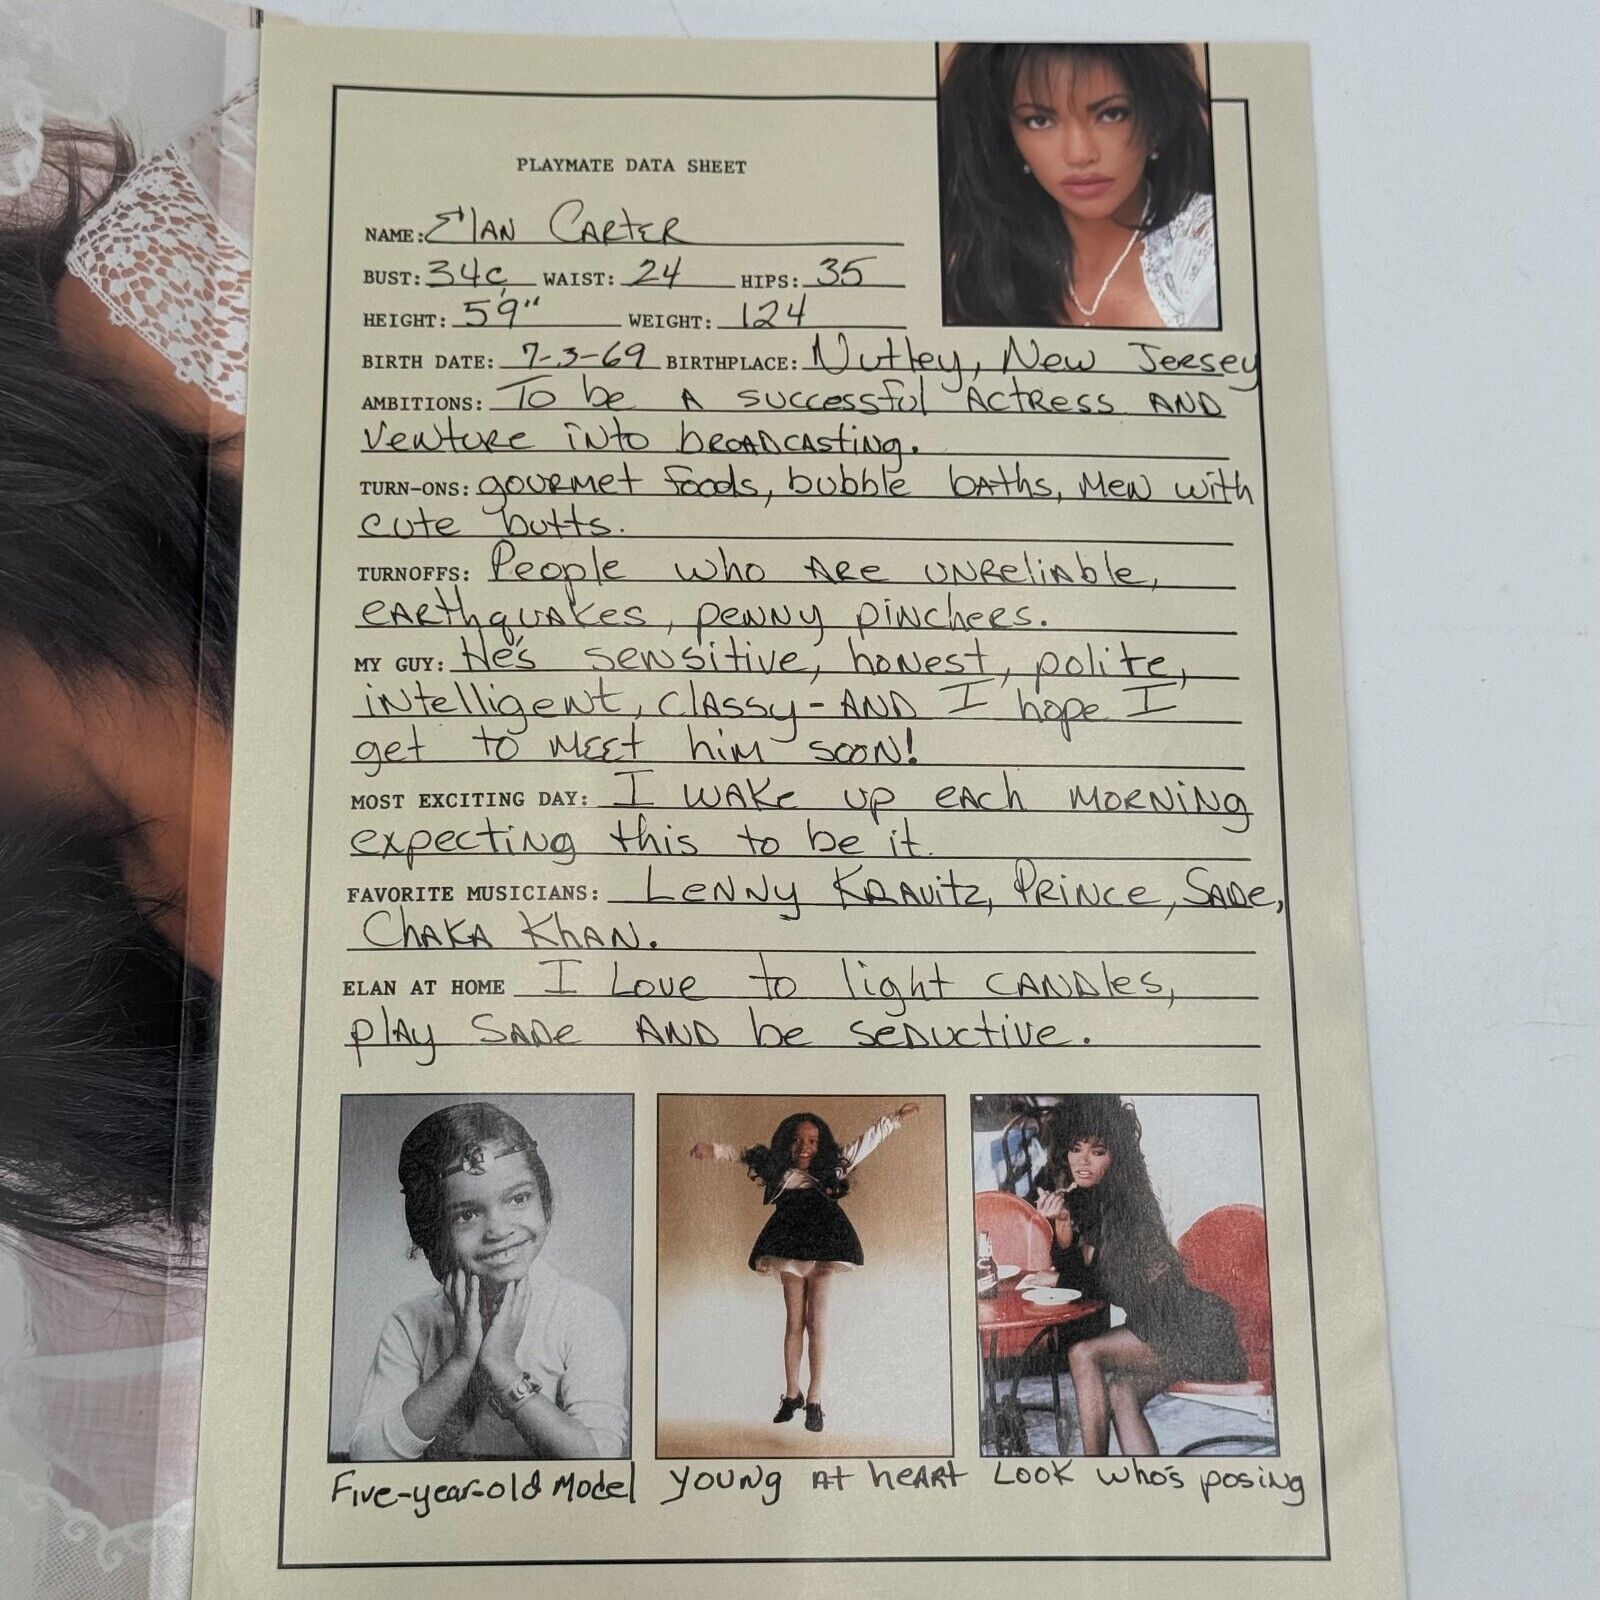 PLAYMATE DATA SHEET
NAME: Elan Carter
BUST: 34C WAIST: 24 HIPS: 35
HEIGHT: 5'9" WEIGHT: 124
BIRTH DATE: 7-3-69 BIRTHPLACE: Nutley, New Jersey
AMBITIONS: To be a successful actress and
venture into broadcasting.
TURN-ONS: gourmet foods, bubble baths, men with
cute butts.
TURNOFFS: People who are unreliable,
earthquakes, penny pinchers.
MY GUY: He's sensitive, honest, polite,
intelligent, classy-and I hope I
get to meet him soon!
MOST EXCITING DAY: I wake up each morning
expecting this to be it.
FAVORITE MUSICIANS: Lenny Kravitz, Prince, Sade,
Chaka Khan.
ELAN AT HOME I love to light candles,
play Sade and be seductive.
Five-year-old model Young at heart Look who's posing